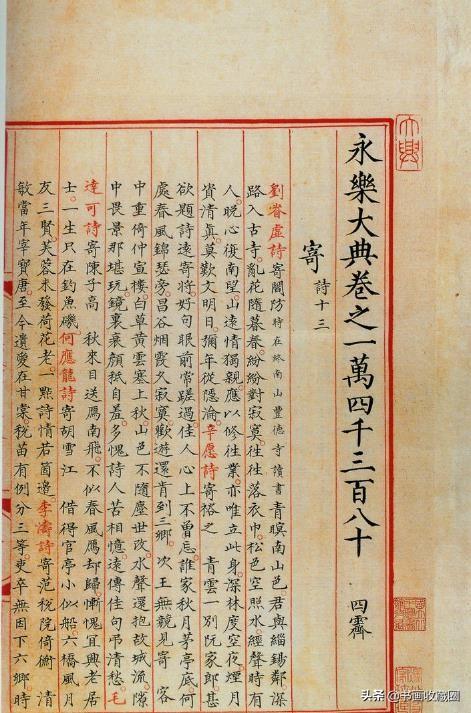 永樂大典卷之一萬四千三百八十　四霽
寄　詩十三
劉眘虛詩　寄閻防　時在終南山豐德寺讀書　青暝南山邑君與緇錫鄰深
路入古寺。亂花隨暮春。紛紛對寂寞。往往落衣巾。松色空照水。經聲時有
人。晚心復南望。山遠情獨親。應以修往業。亦唯立此身。深林度空夜。煙月
資清真。莫歎文明日。彌年從隱淪。辛愿詩　寄裕之　青雲一別阮家郎。甚
欲題詩遠寄將。好句眼前常蹉過。佳人心上不曾忘。誰家秋月茅亭底。何
處春風錦瑟旁。昌谷烟霞久寂寞。歡遊還肯到三鄉。次王無競見寄　客
中重倚仲宣樓。白草黄雲塞上秋。山色不隨塵世改。水聲還抱故城流。隙
中畏景那堪玩。鏡裏衰顏祗自羞。多愧詩人苦相憶。遠傳佳句弔清愁。毛
達可詩　寄陳子高　秋來目送雁南飛。不似春風雁却歸。慚愧宜興老居
士。一生只在釣魚磯。何應龍詩　寄胡雪江　借得官亭小似船。六橋風月
友三賢。芙蓉未發荷花老。一點詩情若箇邊。李濤詩　寄范税院倚衙　清
敏當年宰寶唐。至今遺愛在甘棠。税苗有例分三等。吏卒無因下六鄉。時
大典
头条@书画收藏圈